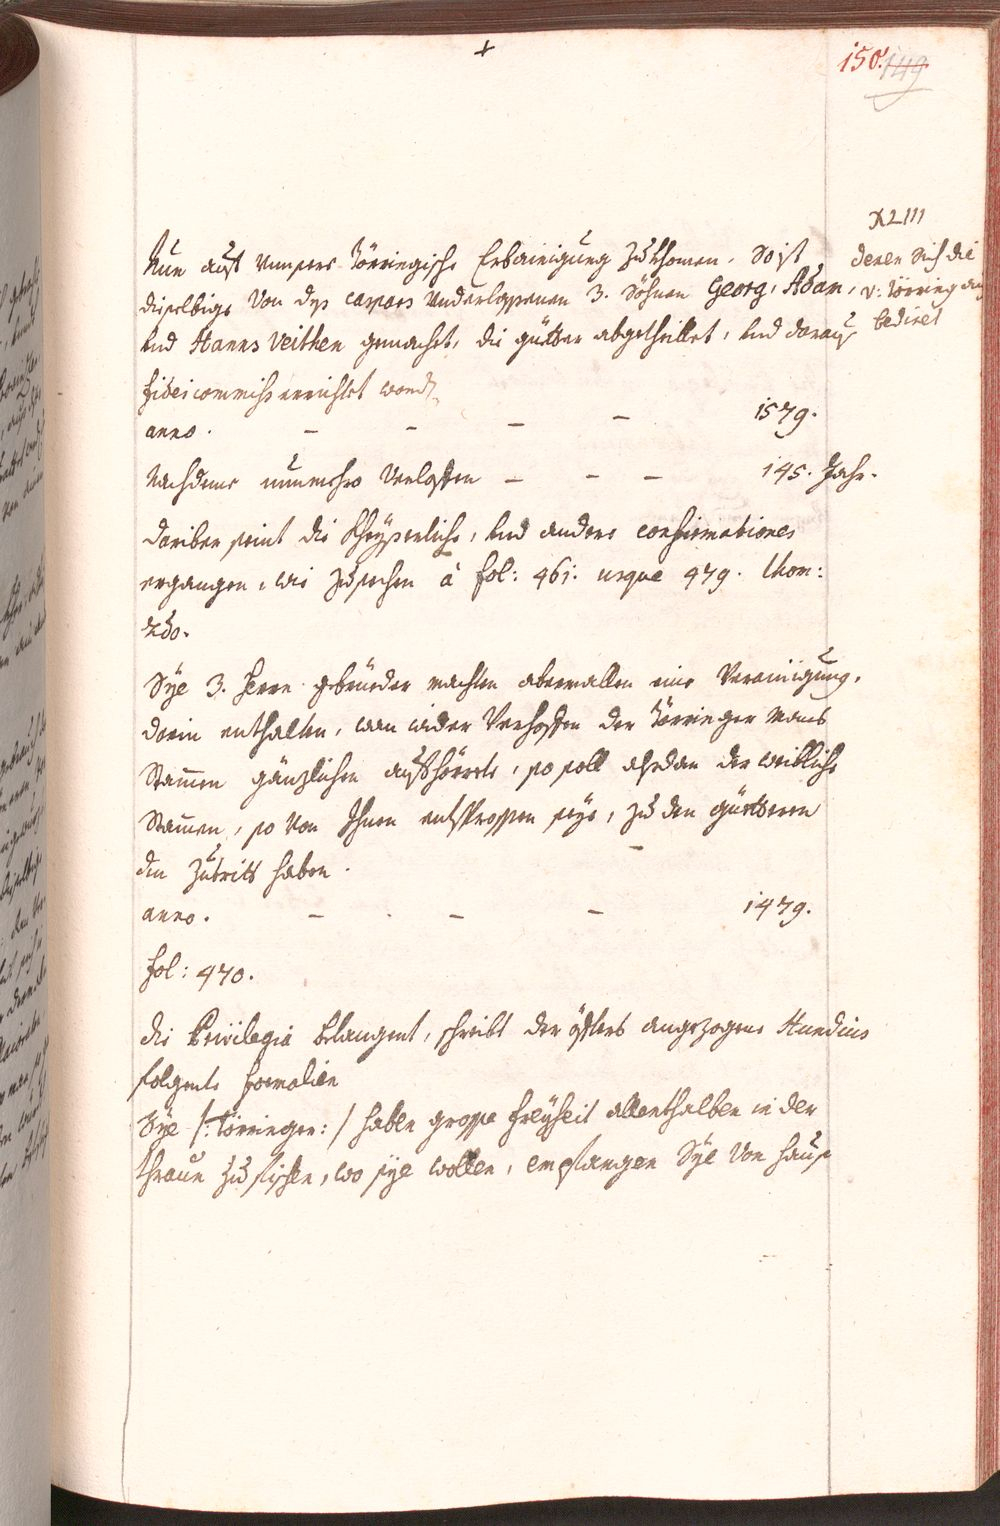 +
150. 149
XLIII
deren sich die
v: Törring auch
bedinet
Nun auf unsere Törringische Erbainigung zu khomen. So ist
dieselbige von des caspars underlassenen 3. Söhnen Georg, Adam,
und Hanns Veithen gemacht, die gütter abgetheillet, und daraus
fideicommiss errichtet word.
anno. – – – – 1579.
Nachdeme nunmehro Verlossen – – – 145. Jahr.
dariber seint die Kheyserliche, und andere confirmationes
ergangen, wie zusechen à fol: 461. usque 479. thom:
2do.
Sye 3. Herrn gebrüeder machten abermallen eine Verainigung,
darin enthalten, wan wider Verhoffen der Törringer Manns
Stamen gänzlichen aufhörrete, so soll alsdan der weibliche
Stamen, so von Ihnen entsprossen seye, zu den güetteren
den Zutritt haben.
anno. – – – 1479.
fol: 470.
die Privilegia belangent, schreibt der öffters angezogene Hundius
folgente formalien
Sye /: Törringer: / haben grosse freyheit allenthalben in der
thraun zu fischen, wo sye wollen, empfangen Sye von Hauß